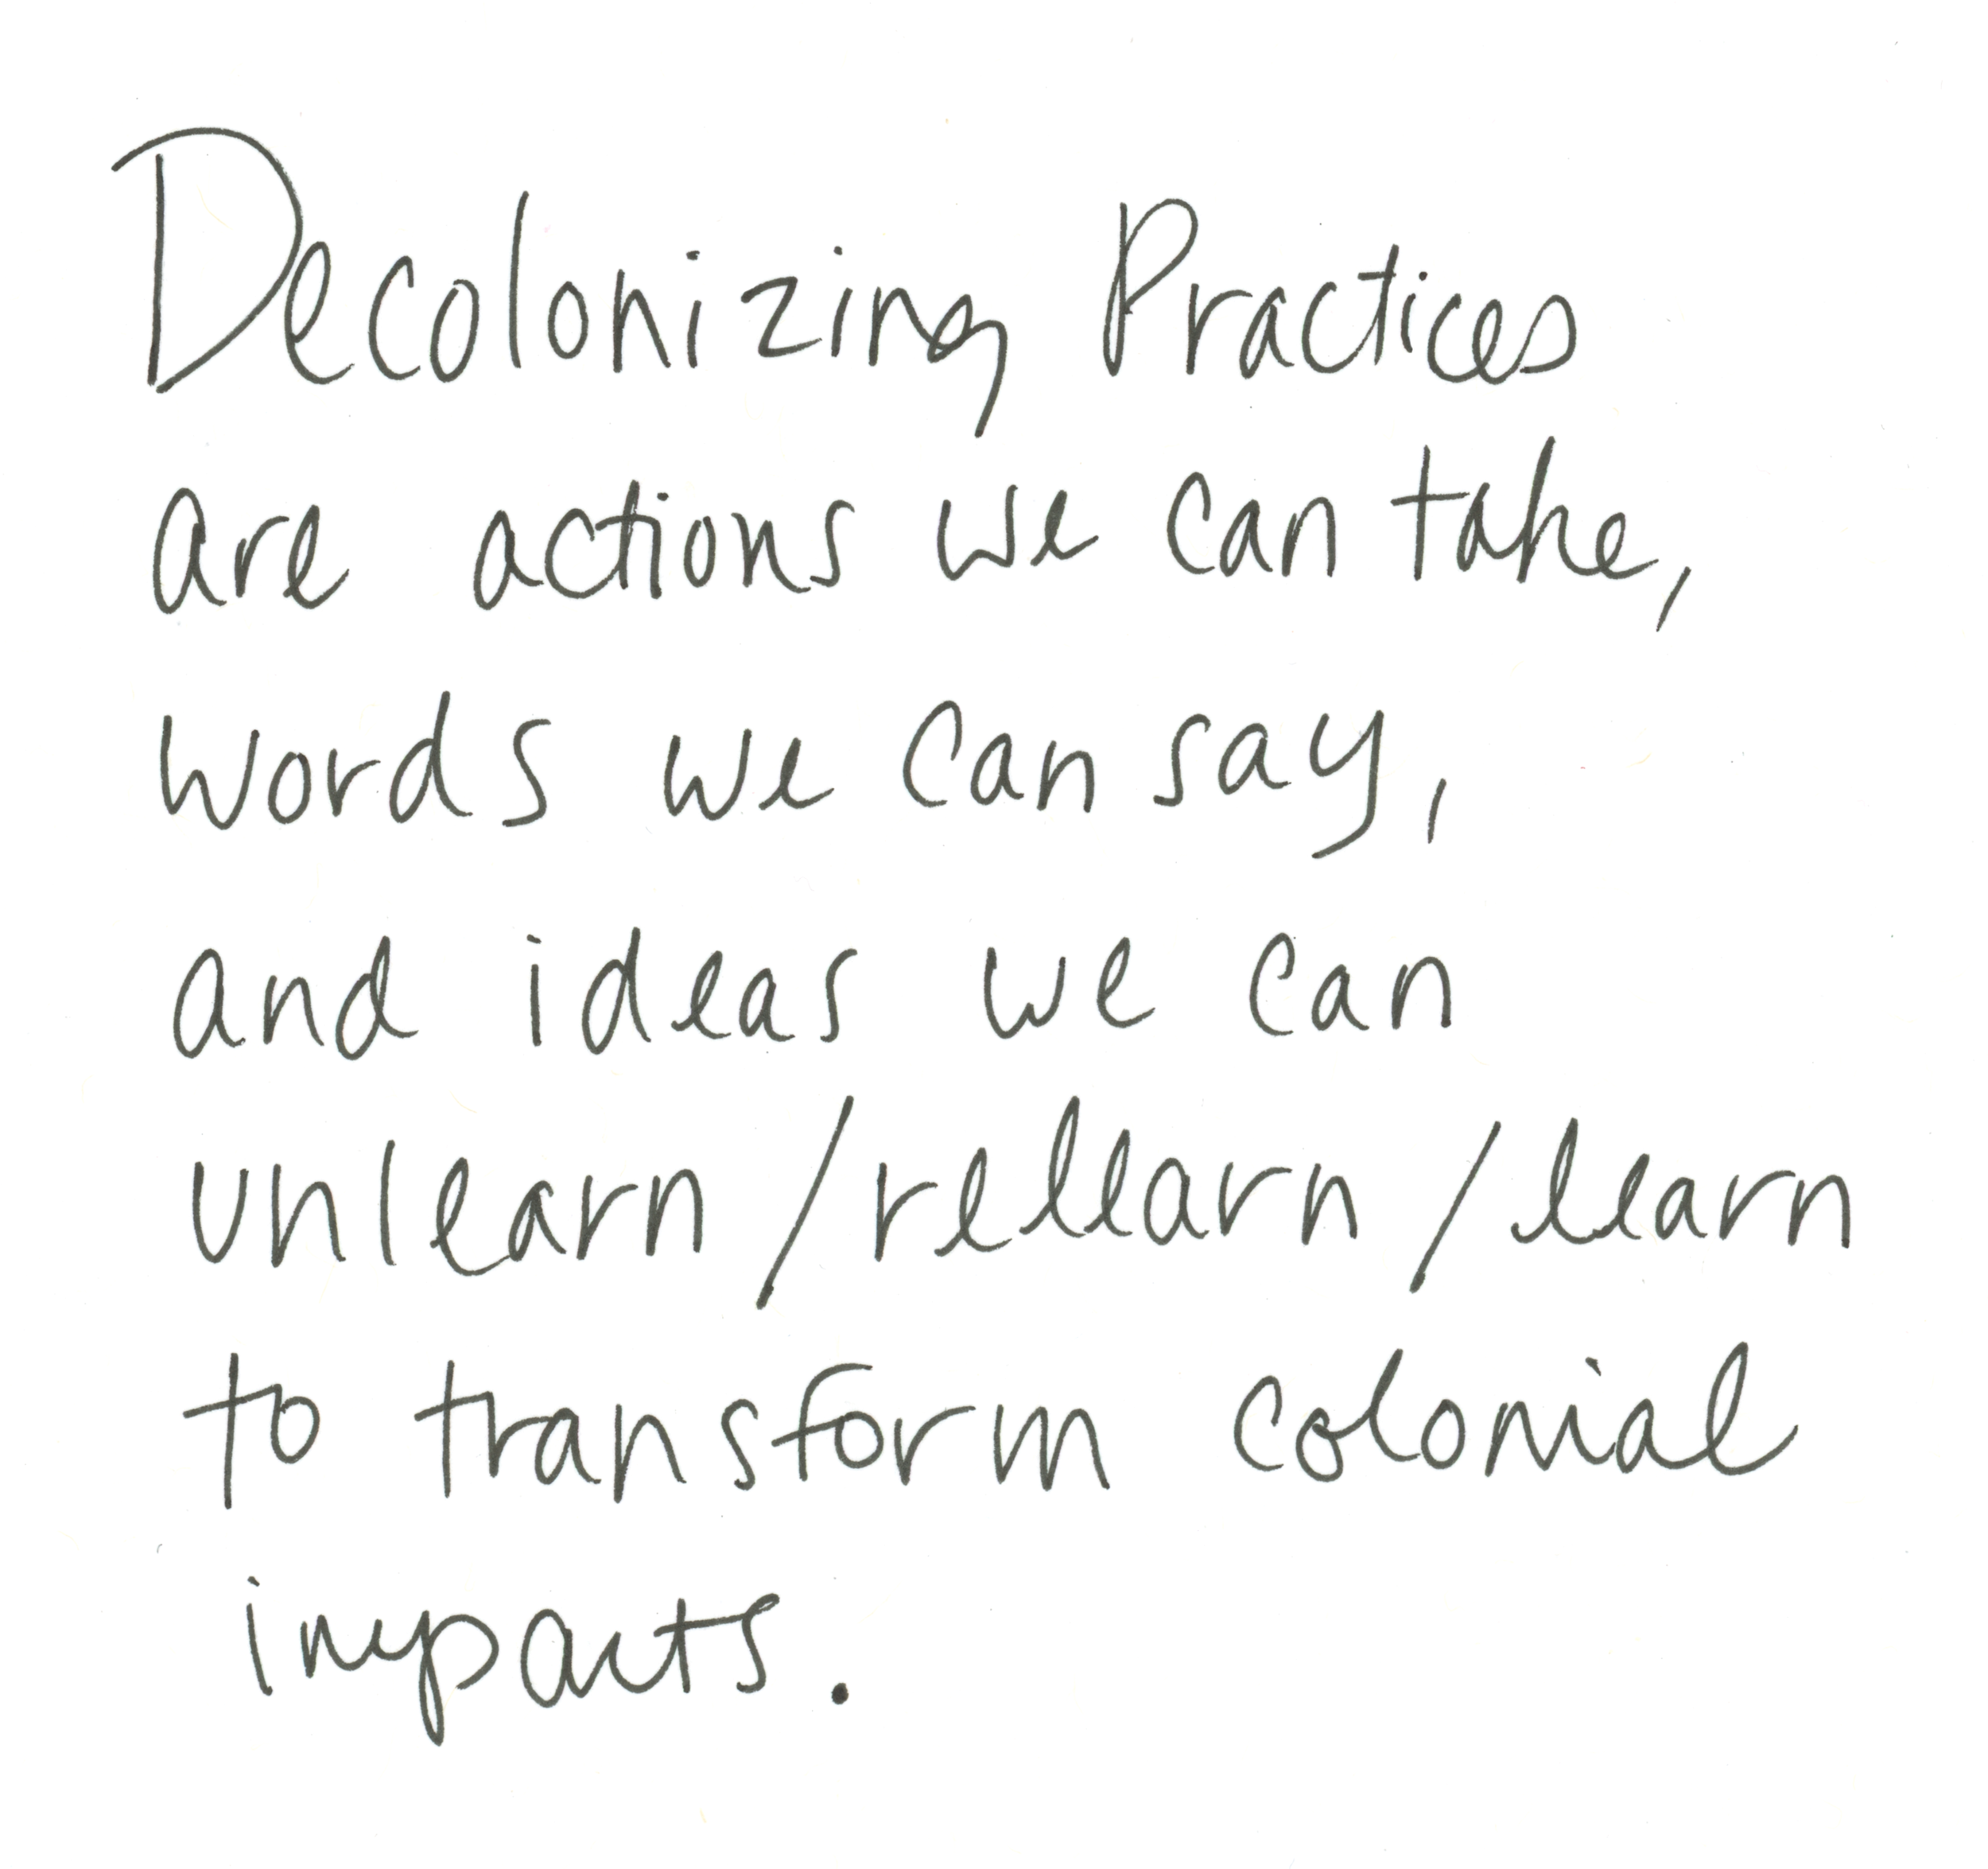 Decolonizing Practices
are actions we can take,
words we can say,
and ideas we can
unlearn/relearn/learn
to transform colonial
impacts.